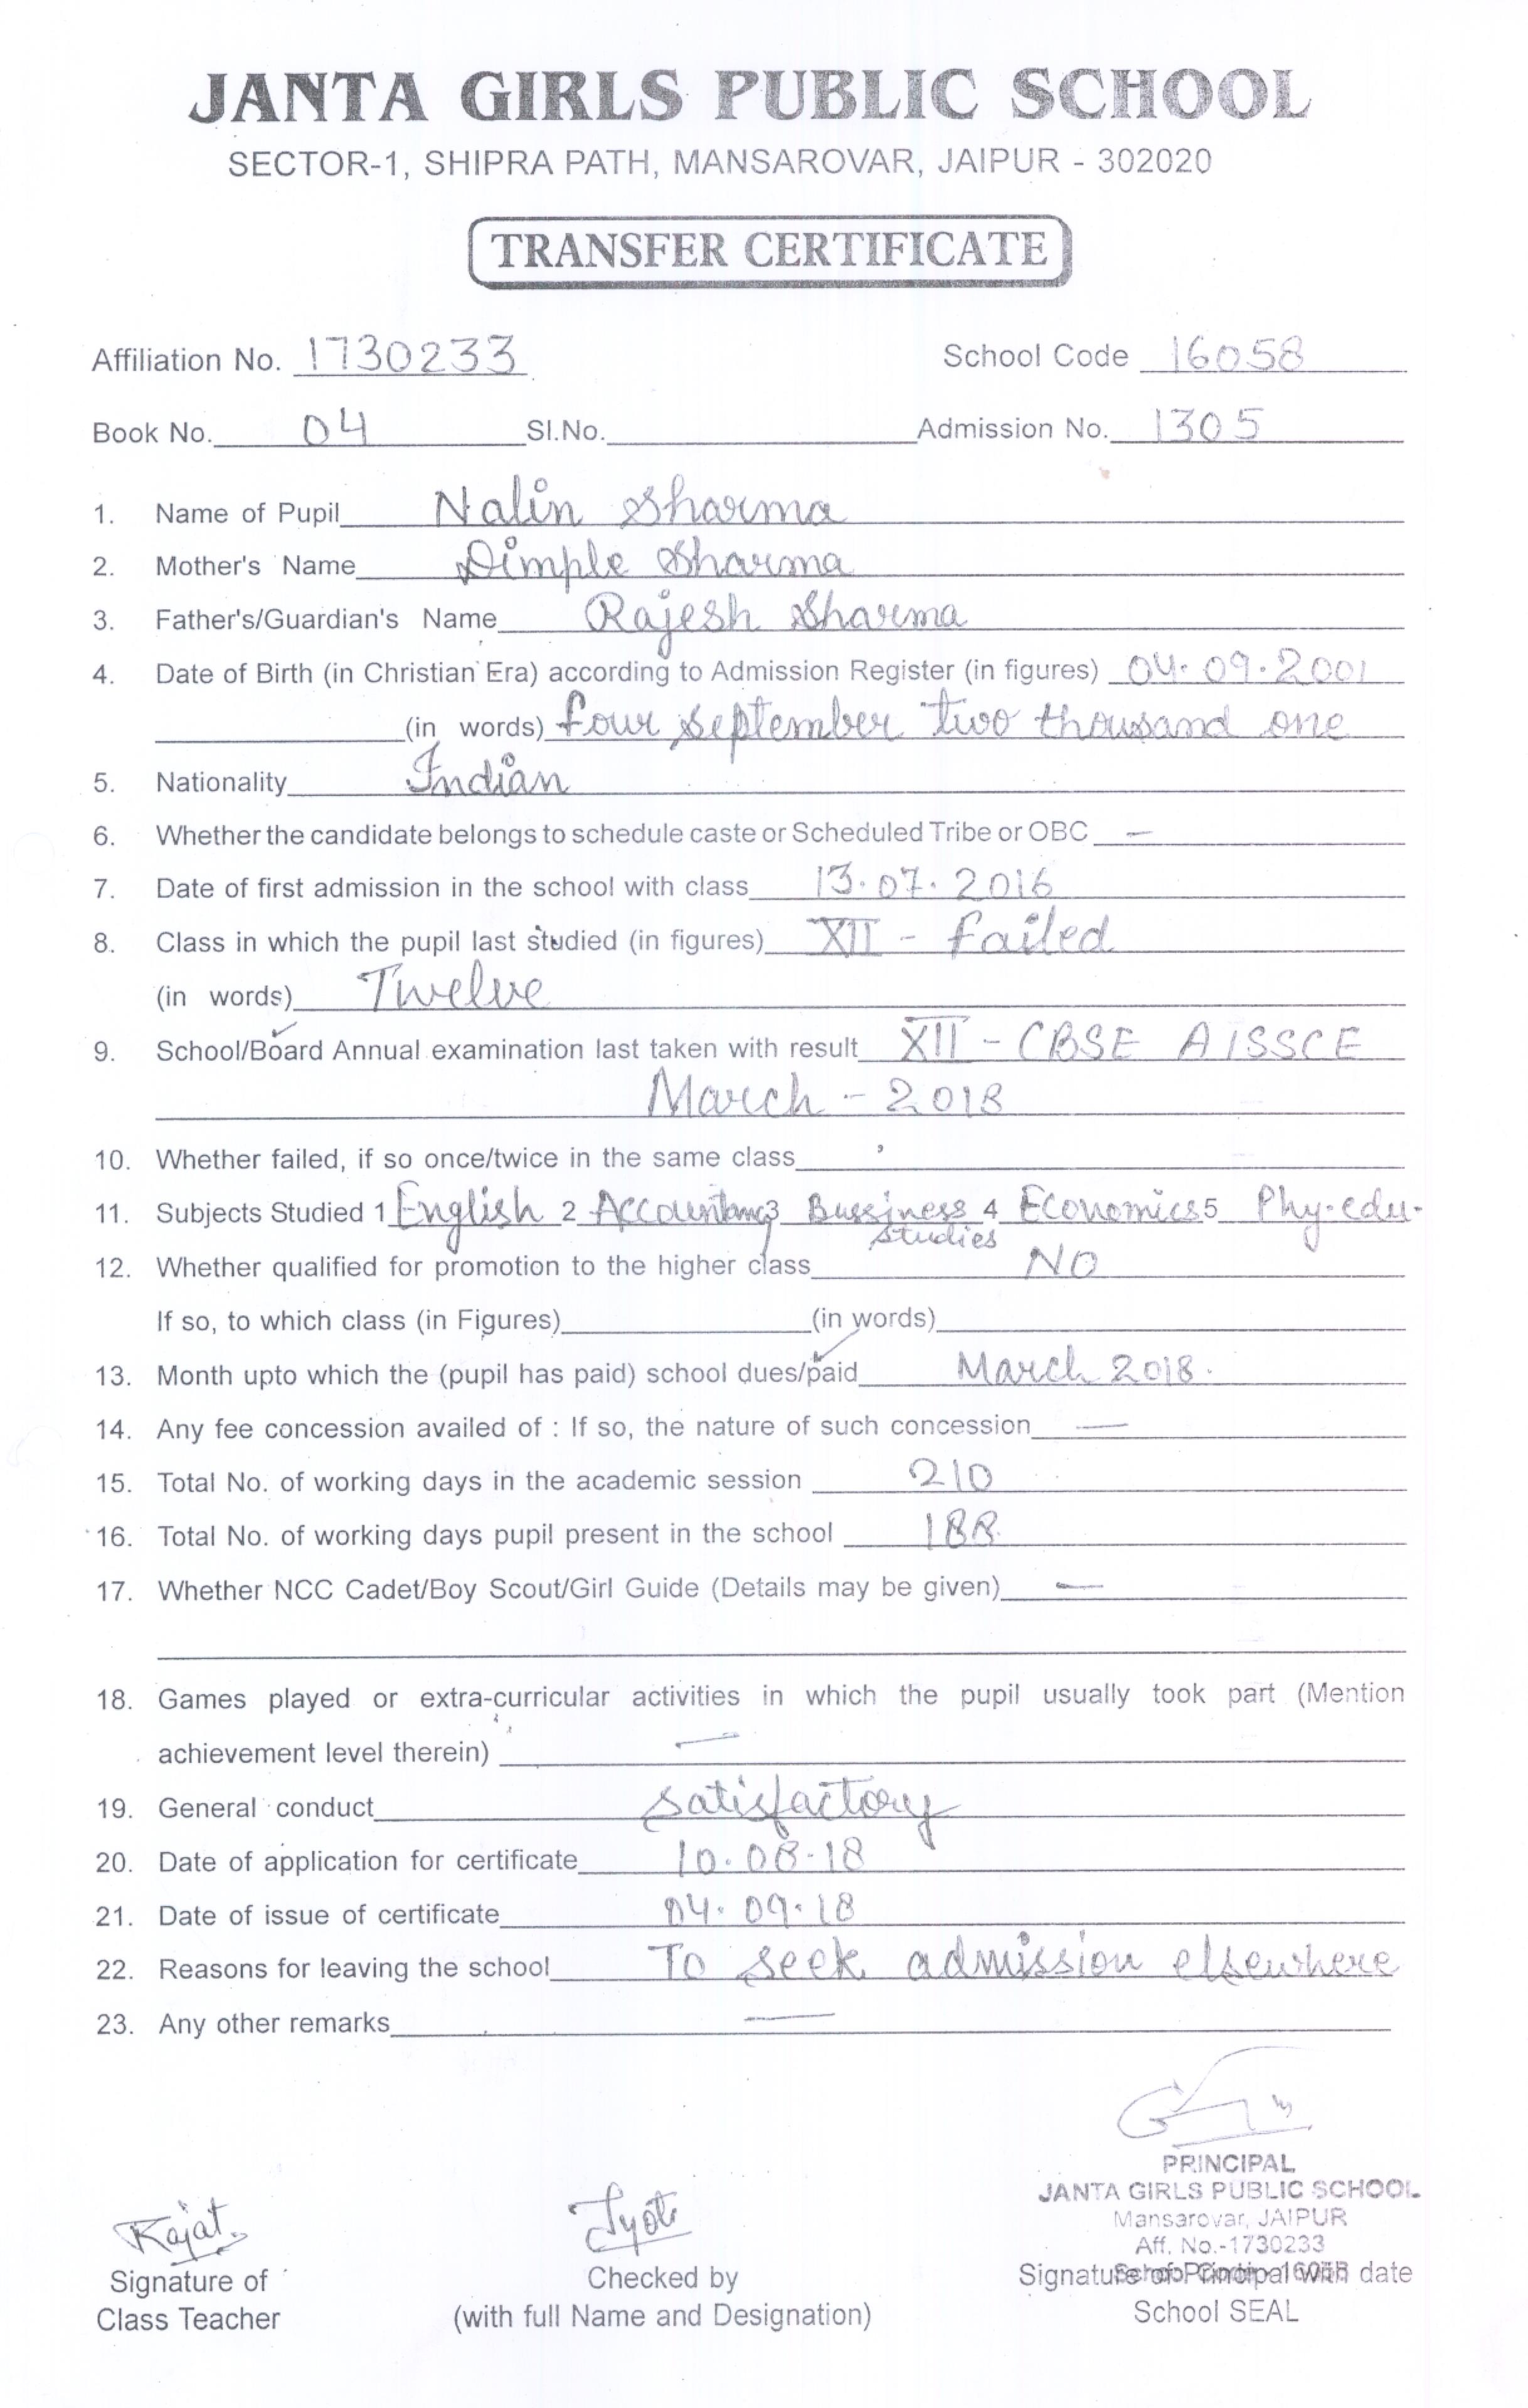 JANTA GIRLS PUBLIC SCHOOL
SECTOR-1, SHIPRA PATH, MANSAROVAR, JAIPUR - 302020
TRANSFER CERTIFICATE
Affiliation No. 1730233 School Code 16058
Book No. 04 Sl.No. Admission No. 1305
1. Name of Pupil Nalin Sharma
2. Mother's Name Dimple Sharma
3. Father's/Guardian's Name Rajesh Sharma
4. Date of Birth (in Christian Era) according to Admission Register (in figures) 04.09.2001
(in words) four september two thousand one
5. Nationality Indian
6. Whether the candidate belongs to schedule caste or Scheduled Tribe or OBC —
7. Date of first admission in the school with class 13.07.2016
8. Class in which the pupil last studied (in figures) XII - failed
(in words) Twelve
9. School/Board Annual examination last taken with result XII - CBSE AISSCE
March - 2018
10. Whether failed, if so once/twice in the same class
11. Subjects Studied 1 English 2 Accountancy 3 Bussiness studies 4 Economics 5 Phy.edu.
12. Whether qualified for promotion to the higher class NO
If so, to which class (in Figures) (in words)
13. Month upto which the (pupil has paid) school dues/paid March 2018.
14. Any fee concession availed of : If so, the nature of such concession —
15. Total No. of working days in the academic session 210
16. Total No. of working days pupil present in the school 188
17. Whether NCC Cadet/Boy Scout/Girl Guide (Details may be given) —
18. Games played or extra-curricular activities in which the pupil usually took part (Mention
achievement level therein) —
19. General conduct satisfactory
20. Date of application for certificate 10.08-18
21. Date of issue of certificate 04.09.18
22. Reasons for leaving the school To seek admission elsewhere
23. Any other remarks —
PRINCIPAL
JANTA GIRLS PUBLIC SCHOOL
Mansarovar, JAIPUR
Aff. No.-1730233
School Code - 16058
Rajat Jyoti
Signature of Checked by Signature of Principal with date
Class Teacher (with full Name and Designation) School SEAL